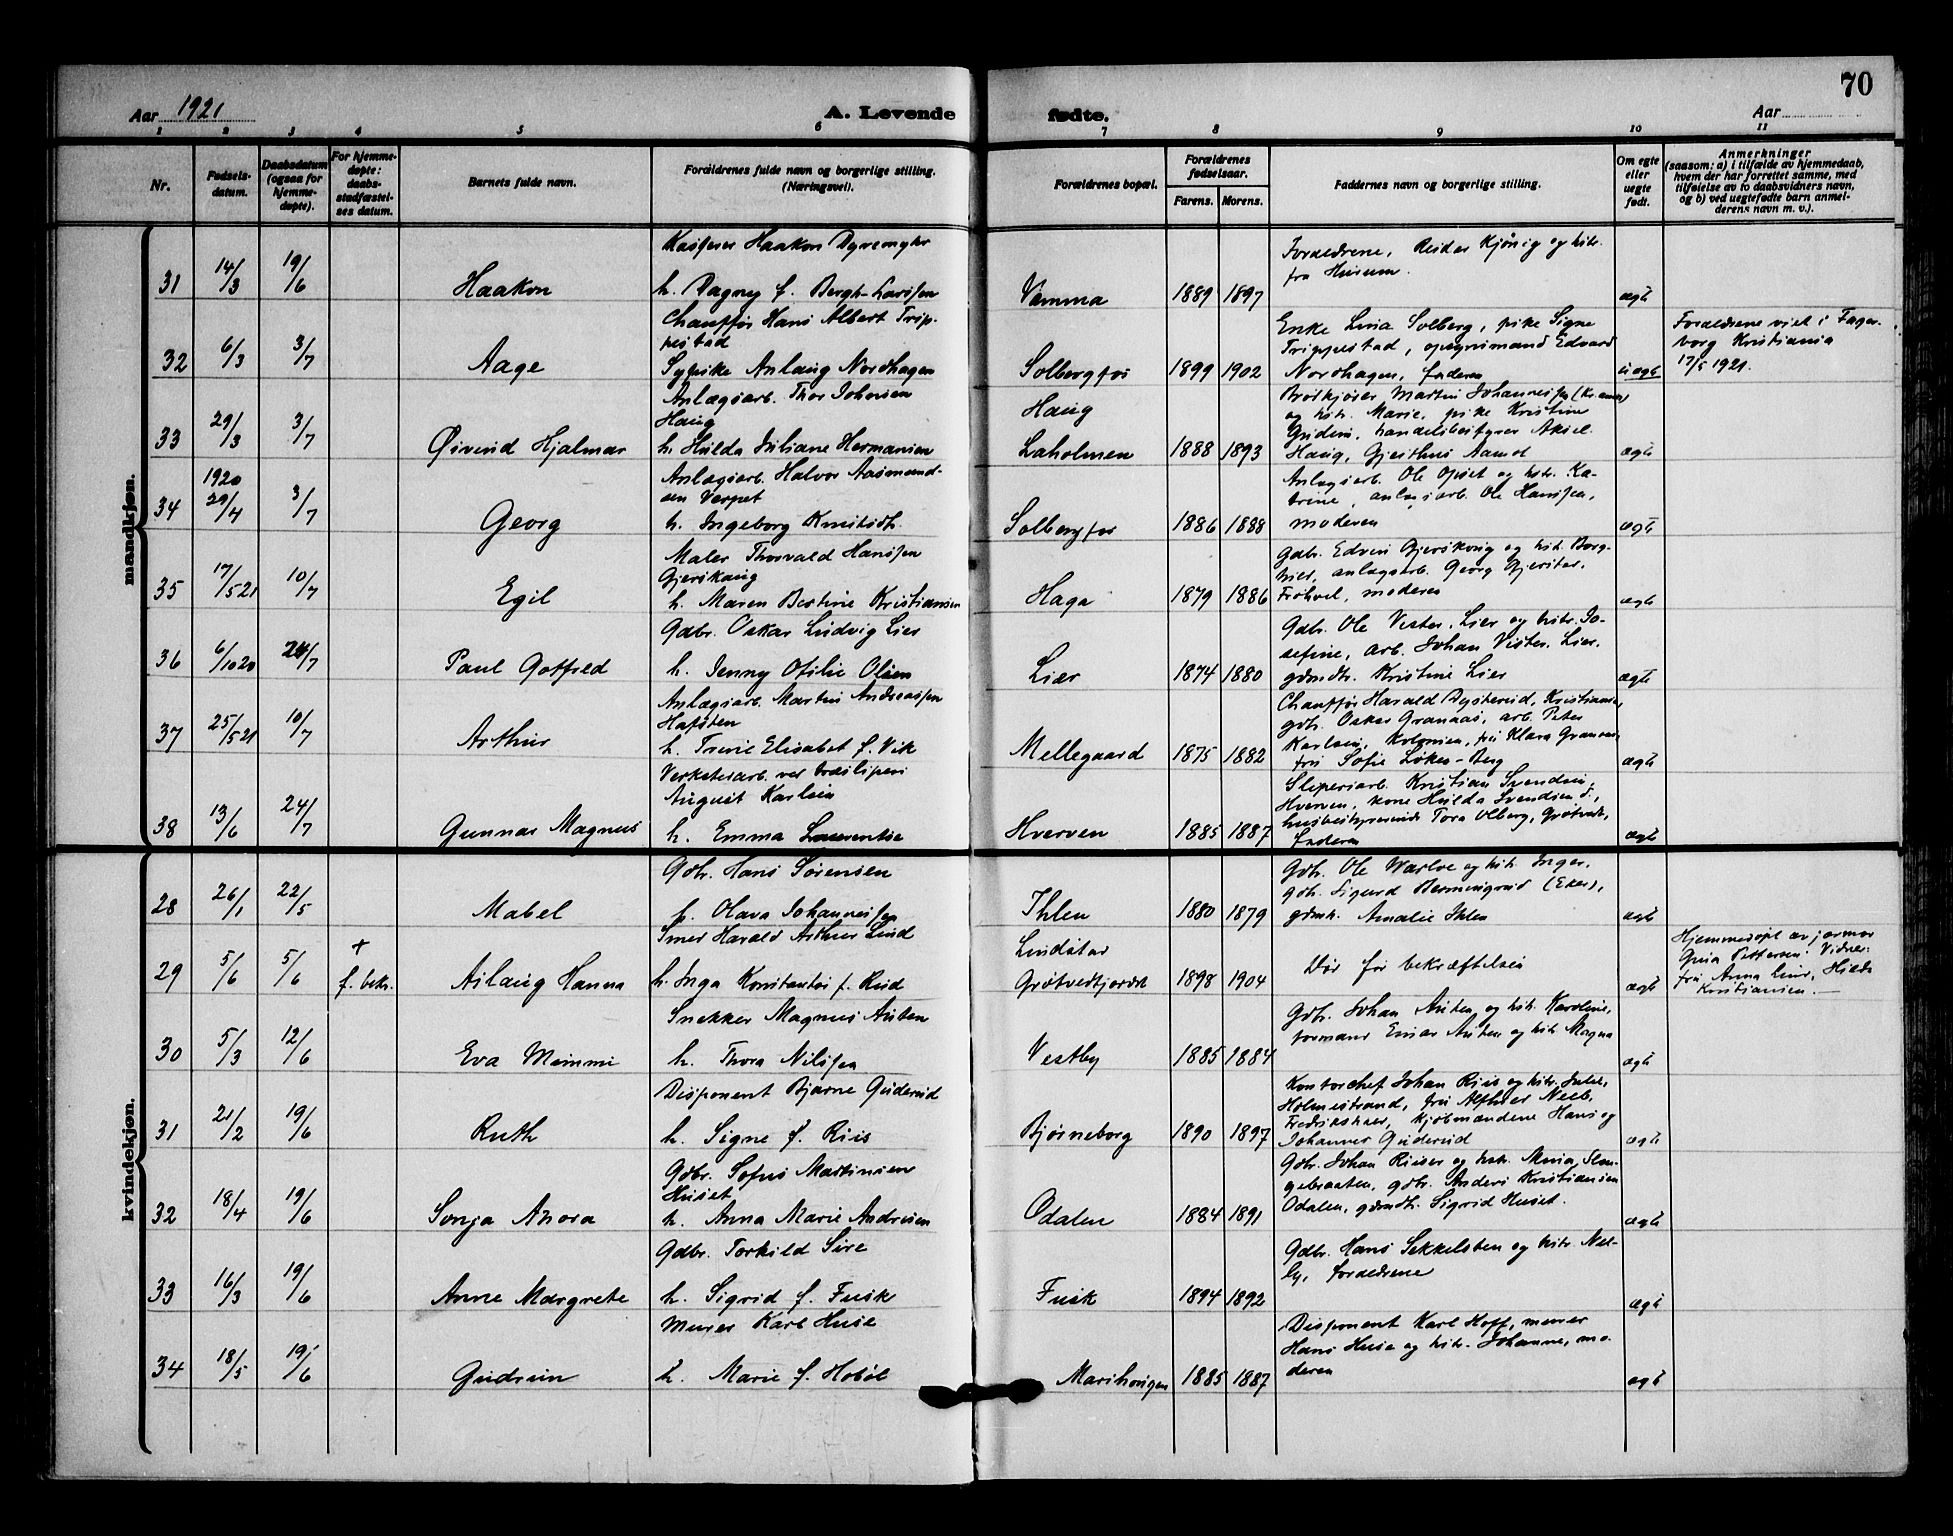 70
Aar 1921
A. Levende
fødte.
Aar
1 2 3 4 5 6 7 8 9 10 11
Nr.
Fødsels-
datum.
Daabsdatum
(ogsaa for
hjemme-
døpte).
For hjemme-
døpte:
daabs-
stadfæstel-
ses datum.
Barnets fulde navn.
Forældrenes fulde navn og borgerlige stilling.
(Næringsvei).
Forældrenes bopæl.
Forældrenes
fødselsaar.
Farens. Morens.
Faddernes navn og borgerlige stilling.
Om egte
eller
uegte
født.
Anmerkninger
(saasom: a) i tilfælde av hjemmedaab,
hvem der har forrettet samme, med
tilføielse av to daabsvidners navn,
og b) ved uegtefødte barn anmel-
derens navn m. v.).
mandkjøn.
31 14/3 19/6 Haakon
Kasserer Haakon Dyremyhr
h. Dagny f. Bergh-Larssen
Vamma 1889 1897
Forældrene, Reidar Kjønig og hstr.
fra Husum.
ægte
32 6/3 3/7 Aage
Chauffør Hans Albert Trip-
pestad
Sypike Anlaug Nordhagen
Solbergfos 1899 1902
Enke Lina Solberg, pike Signe
Trippestad, opsynsmand Edvard
Nordhagen, faderen
uægte
Forældrene viet i Fager-
borg Kristiania
17/5 1921.
33 29/3 3/7 Øivind Hjalmar
Anlægsarb. Thor Johnsen
Haug
h. Hilda Juliane Hermansen
Haug
Laholmen 1888 1893
Brødkjører Martin Johannessen
og hstr. Marie, pike Kristine
handelsbestyrer Aksel
Haug,
ægte
34 1920 29/4 3/7 Georg
Anlægsarb. Halvor Aasmund-
sen Verpet
h. Ingeborg Knutsdtr.
Solbergfos 1886 1888
Anlægsarb. Ole Opset og hstr. Ka-
trine, anlægsarb. Ole Hanssen,
moderen
ægte
35 17/5 21 10/7 Egil
Maler Thorvald Hanssen
Gjerskaug
h. Maren Bertine Kristiansen
Haga 1879 1886
Gdbr. Edvin Gjerskaug og hstr. Borg-
anlægsarb. Georg
moderen
ægte
36 6/10 20 24/7 Paul Gotfred
Gdbr. Oskar Ludvig Lier
h. Jenny Otilie Olsen
Lier 1874 1880
Gdbr. Ole Vester. Lier og hstr. Jo-
sefine, arb. Johan Vester. Lier.
gdmdtr. Kristine Lier
ægte
37 25/5 21 10/7 Arthur
Anlægsarb. Martin Andreassen
Hafsten
h. Trine Elisabet f. Vik
Mellegaard 1875 1882
Chauffør Harald Kristiania,
gdbr. Oskar Granaas, arb. Peter
Karlsen, Kolonien, fru Klara Granaas,
fru Sofie Løken-Berg
ægte
38 13/6 24/7 Gunnar Magnus
Verkstedarb. ved træsliperi
August Karlsen
h. Emma Laurentse
Hverven 1885 1887
Sliperiarb. Kristian Svendsen,
Hverven, kone Hulda Svendsen
husbestyrerinde Tora Olberg, Grøtvedt,
faderen
ægte
kvindekjøn.
28 26/1 22/5 Mabel
Gdbr. Hans Sørensen
h. Olava Johannessen
Ihlen 1880 1879
Gdbr. Ole Warloe og hstr. Inger.
gdbr. Sigurd (Eker),
gdmdtr. Amalie Ihlen
ægte
29 5/6 5/6 + f. bekr. Aslaug Hanna
Smed Harald Arthur Lund
h. Inga Konstantse f. Rud
Lundstad
Grøtvedtjordet 1898 1904
Død før bekræftelsen
ægte
Hjemmedøpt av jormor
Guia Pettersen. Vidner:
fru Anna Lund, Hilda
Kristiansen. —
30 5/3 12/6 Eva Mimmi
Snekker Magnus Auten
h. Thora Nilssen
Vestby 1885 1884
Gdbr. Johan Auten og hstr. Karoline,
formand Einar Auten og hstr. Magna
ægte
31 21/2 19/6 Ruth
Disponent Bjarne Guderud
h. Signe f. Riis
Bjørneborg 1890 1897
Kontorchef Johan Riis og hstr. Julie,
Holmestrand, fru
Fredrikshald, kjøbmændene Hans og
Johannes Guderud
ægte
32 18/4 19/6 Sonja Anora
Gdbr. Sofus Martinsen
Huset
h. Anna Marie Andresen
Odalen 1884 1891
Gdbr. Johan Rieser og hstr. Maria, Slen-
gebraaten, gdbr. Anders Kristiansen
Odalen, gdmdtr. Sigrid Huset.
ægte
33 16/3 19/6 Anne Margrete
Gdbr. Torkild Sire
h. Sigrid f. Fusk
Fusk 1894 1892
Gdbr. Hans Sekkelsten og hstr. Nel-
ly, forældrene
ægte
34 18/5 19/6 Gudrun
Murer Karl Huse
h. Marie f. Hobøl
Marihaugen 1885 1887
Disponent Karl Hoff, murer
Hans Huse og hstr. Johanne, mo-
deren
ægte